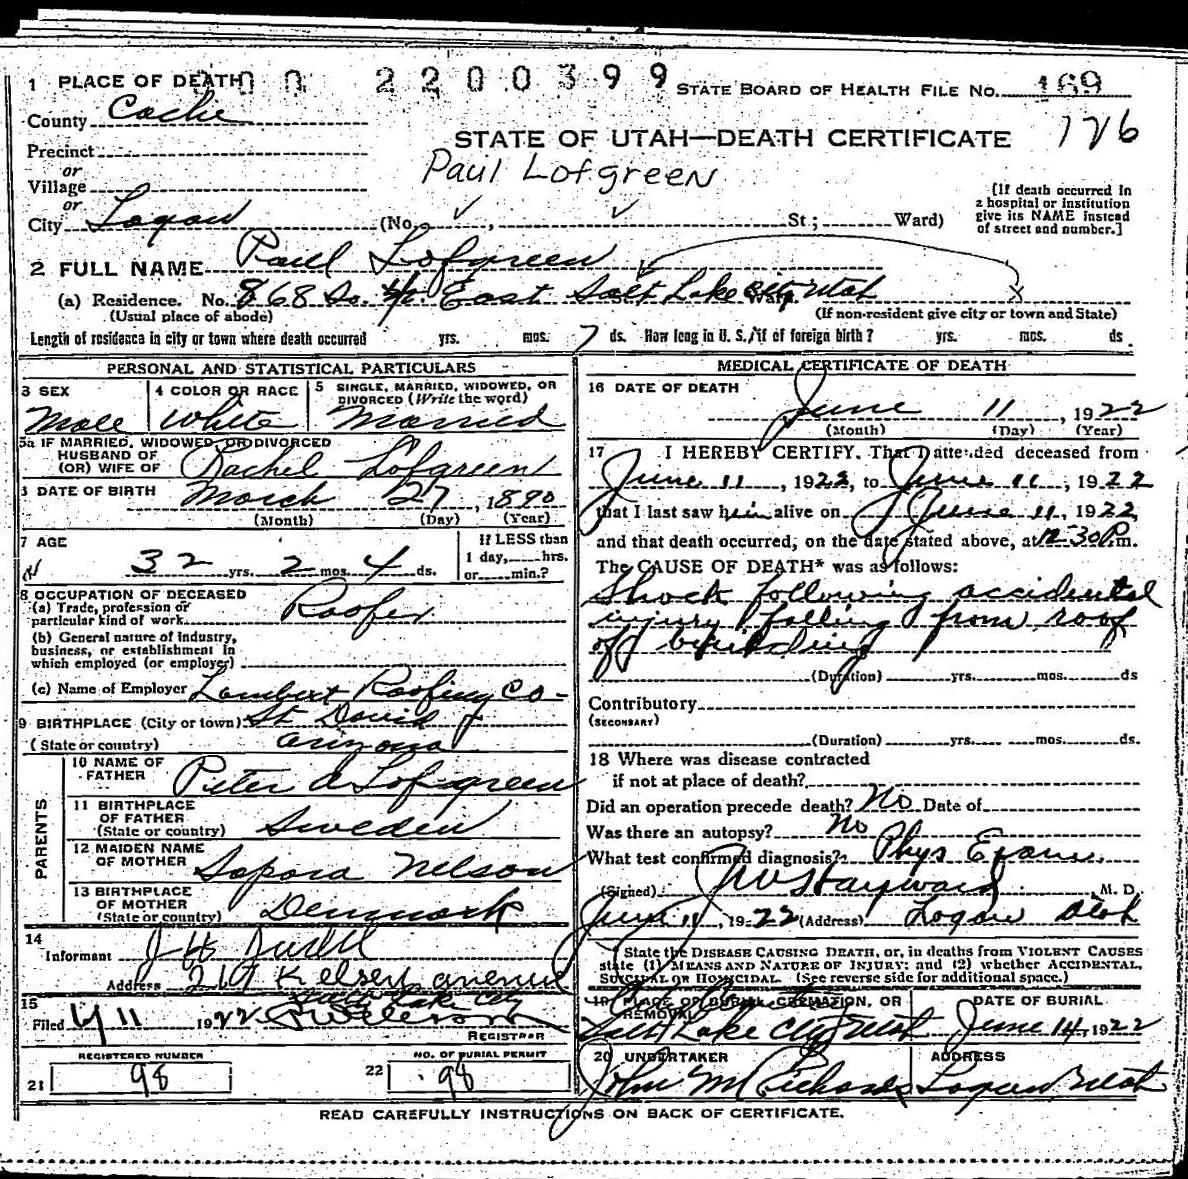 1 PLACE OF DEATH 300 2200399
STATE BOARD OF HEALTH FILE No. 169
County Cache
STATE OF UTAH—DEATH CERTIFICATE 126
Precinct
or
Paul Lofgreen
Village
or
City Logan (No. , St.; Ward)
[If death occurred in
a hospital or institution
give its NAME instead
of street and number.]
2 FULL NAME Paul Lofgreen
(a) Residence. No. 868 So. East Salt Lake City Utah
(Usual place of abode) (If non-resident give city or town and State)
Length of residence in city or town where death occurred yrs. mos. 7 ds. How long in U. S., if of foreign birth? yrs. mos. ds.
PERSONAL AND STATISTICAL PARTICULARS
3 SEX
Male
4 COLOR OR RACE
White
5 SINGLE, MARRIED, WIDOWED, OR
DIVORCED (Write the word)
Married
5a IF MARRIED, WIDOWED, OR DIVORCED
HUSBAND OF
(OR) WIFE OF Rachel Lofgreen
6 DATE OF BIRTH March 27, 1890
(Month) (Day) (Year)
7 AGE
32 yrs. 2 mos. 4 ds.
If LESS than
1 day, hrs.
or min.?
8 OCCUPATION OF DECEASED
(a) Trade, profession or
particular kind of work Roofer
(b) General nature of industry,
business, or establishment in
which employed (or employer)
(c) Name of Employer Lambert Roofing Co-
9 BIRTHPLACE (City or town) St David
(State or country) Arizona
PARENTS
10 NAME OF
FATHER Peter A Lofgreen
11 BIRTHPLACE
OF FATHER
(State or country) Sweden
12 MAIDEN NAME
OF MOTHER Nelson
13 BIRTHPLACE
OF MOTHER
(State or country) Denmark
14
Informant J H
Address Kelsey avenue
Salt Lake City
15
Filed 11 1922
REGISTRAR
REGISTERED NUMBER
21 98
NO. OF BURIAL PERMIT
22 98
MEDICAL CERTIFICATE OF DEATH
16 DATE OF DEATH
June 11, 1922
(Month) (Day) (Year)
17 I HEREBY CERTIFY, That I attended deceased from
June 11, 1922, to June 11, 1922
that I last saw him alive on June 11, 1922,
and that death occurred, on the date stated above, at 12-30 P.m.
The CAUSE OF DEATH* was as follows:
Shock following accidental
injury falling from roof
of building
(Duration) yrs. mos. ds
Contributory
(SECONDARY)
(Duration) yrs. mos. ds.
18 Where was disease contracted
if not at place of death?
Did an operation precede death? No Date of
Was there an autopsy? No
What test confirmed diagnosis? Phys Exam.
(Signed) Hayward, M. D.
June 11, 1922 (Address) Logan Utah
State the DISEASE CAUSING DEATH, or, in deaths from VIOLENT CAUSES
state (1) MEANS AND NATURE OF INJURY; and (2) whether ACCIDENTAL,
SUICIDAL or HOMICIDAL. (See reverse side for additional space.)
19 PLACE OF BURIAL, CREMATION, OR
REMOVAL
Salt Lake City Utah
DATE OF BURIAL
June 14, 1922
20 UNDERTAKER
John M Richards
ADDRESS
Logan Utah
READ CAREFULLY INSTRUCTIONS ON BACK OF CERTIFICATE.